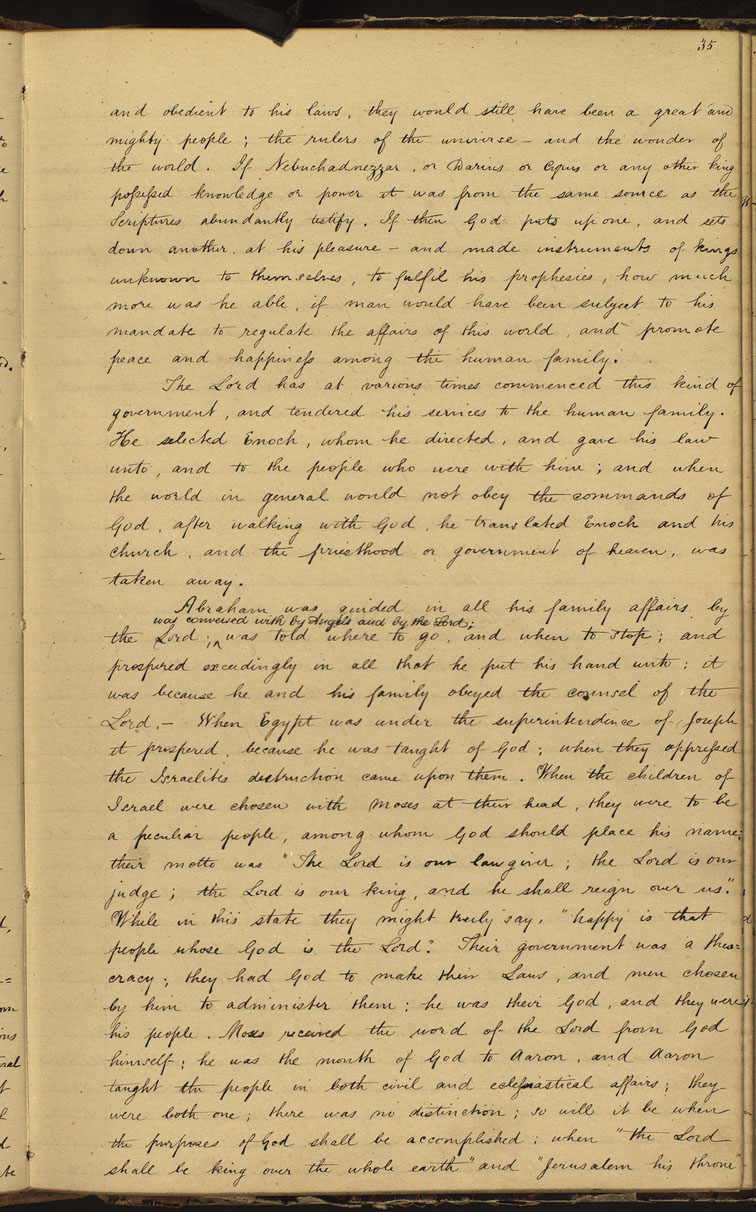 35
and obedient to his laws, they would still have been a great and
mighty people; the rulers of the universe – and the wonder of
the world. If Nebuchadnezzar, or Darius or Cyrus or any other king
possessed knowledge or power it was from the same source as the
Scriptures abundantly testify. If then God puts up one, and sets
down another at his pleasure – and made instruments of kings
unknown to themselves, to fulfil his prophesies, how much
more was he able, if man would have been subject to his
mandate to regulate the affairs of this world, and promote
peace and happiness among the human family.
The Lord has at various times commenced this kind of
government, and tendered his services to the human family.
He selected Enoch, whom he directed, and gave his law
unto, and to the people who were with him; and when
the world in general would not obey the commands of
God, after walking with God, he translated Enoch and his
church, and the priesthood or government of heaven, was
taken away.
Abraham was guided in all his family affairs by
was conversed with by Angels and by the Lord;
the Lord; ^ was told where to go, and when to stop; and
prospered exceedingly in all that he put his hand unto: it
was because he and his family obeyed the counsel of the
Lord,– When Egypt was under the superintendence of Joseph
it prospered, because he was taught of God; when they oppressed
the Israelites destruction came upon them. When the children of
Israel were chosen with Moses at their head, they were to be
a peculiar people, among whom God should place his name;
their motto was "The Lord is our lawgiver; the Lord is our
judge; the Lord is our king, and he shall reign over us."
While in this state they might truly say, "happy is that
people whose God is the Lord." Their government was a theo=
cracy; they had God to make their Laws, and men chosen
by him to administer them; he was their God, and they were
his people. Moses received the word of the Lord from God
himself; he was the mouth of God to Aaron, and Aaron
taught the people in both civil and eclessiastical affairs; they
were both one; there was no distinction; so will it be when
the purposes of God shall be accomplished; when "the Lord
shall be king over the whole earth" and "Jerusalem his throne"